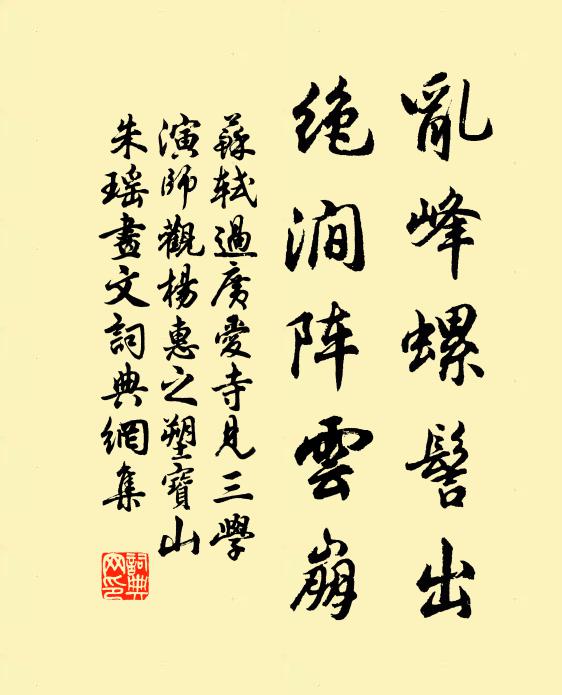 亂峰螺髻出
绝澗阵雲崩
蘇軾過廣愛寺見三學
演師觀楊惠之塑寶山
朱瑶畫文詞典網集
詞典
网印